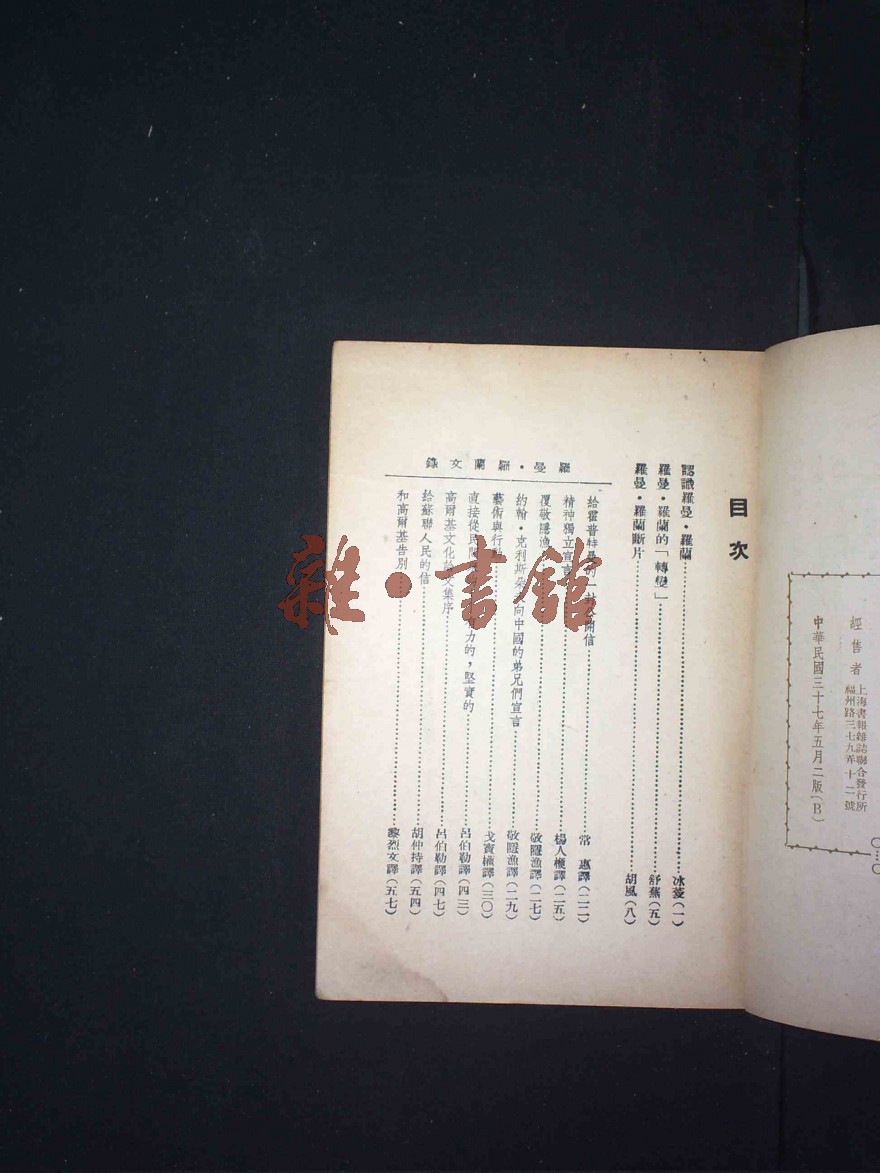 經售者
上海書報雜誌聯合發行所
福州路三七九弄十二號
中華民國三十七年五月二版(B)
目次
認識羅曼·羅蘭 冰菱(一)
羅曼·羅蘭的「轉變」 舒蕪(五)
羅曼·羅蘭斷片 胡風(八)
羅曼·羅蘭文錄
給霍普特曼的一封公開信 常惠譯(二二)
精神獨立宣言 楊人楩譯(二五)
覆敬隱漁 敬隱漁譯(二七)
約翰·克利斯朵夫向中國的弟兄們宣言 敬隱漁譯(二九)
藝術與行動 戈寶權譯(三〇)
直接從民間 有力的,堅實的 呂伯勒譯(四三)
高爾基文化論文集序 呂伯勒譯(四七)
給蘇聯人民的信 胡仲持譯(五四)
和高爾基告別 黎烈文譯(五七)
雜·書館